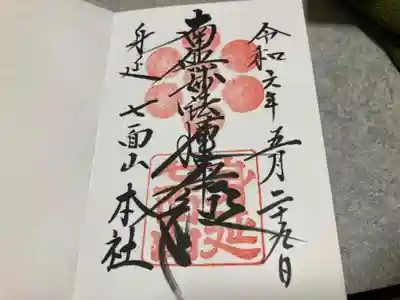 令和元年五月二十九日
南無妙法蓮華経
身延七面山本社